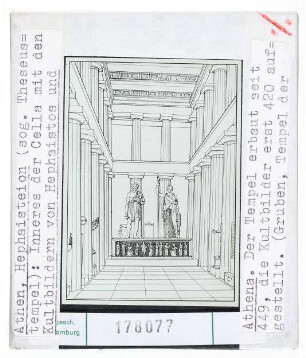 Athen, Hephaisteion (sog. Theseus=
tempel): Inneres der Cella mit den
Kultbildern von Hephaistos und
Athena. Der Hempel erbaut seit
449, die Kultbilder erst 420 auf-
gestellt. (Gruben, Tempel der
gesch.
amburg
178077